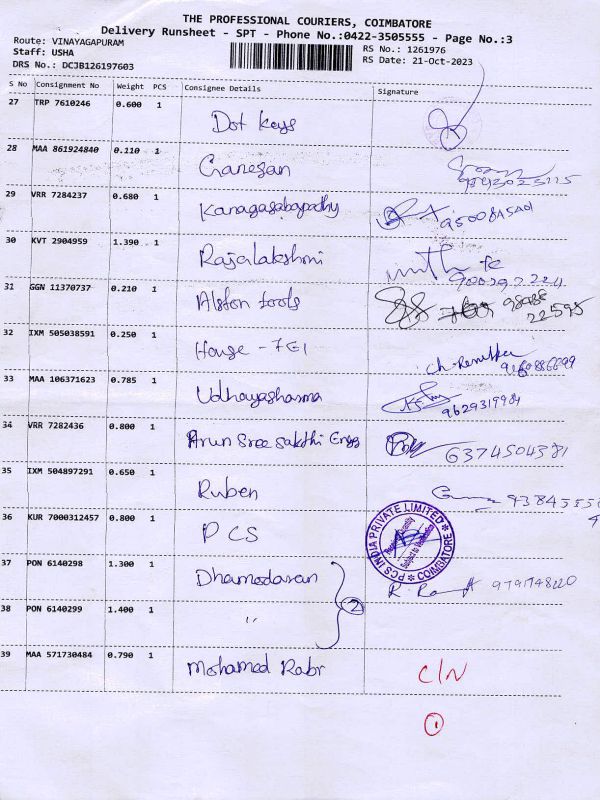 THE PROFESSIONAL COURIERS, COIMBATORE
Delivery Runsheet - SPT - Phone No.:0422-3505555 - Page No.:3
Route: VINAYAGAPURAM
RS No.: 1261976
Staff: USHA
RS Date: 21-Oct-2023
DRS No.: DCJB126197603
S No Consignment No Weight PCS Consignee Details Signature
27 TRP 7610246 0.600 1 Dot Keys
28 MAA 861924840 0.110 1 Ganesan
29 VRR 7284237 0.680 1 Kanagasabapathy
30 KVT 2904959 1.390 1 Rajalakshmi
31 GGN 11370737 0.210 1 Alston tools 98988 22595
32 IXM 505038591 0.250 1 House - 7E1
33 MAA 106371623 0.785 1 Udhayasharma 9629319984
34 VRR 7282436 0.800 1 Arun Sree Sakthi Engg 6374504381
35 IXM 504897291 0.650 1 Ruben
36 KUR 7000312457 0.800 1 PCS PCS INDIA PRIVATE LIMITED COIMBATORE
37 PON 6140298 1.300 1 Dhamodaran
38 PON 6140299 1.400 1 " 2
39 MAA 571730484 0.790 1 Mohamed Rabr C/N
1